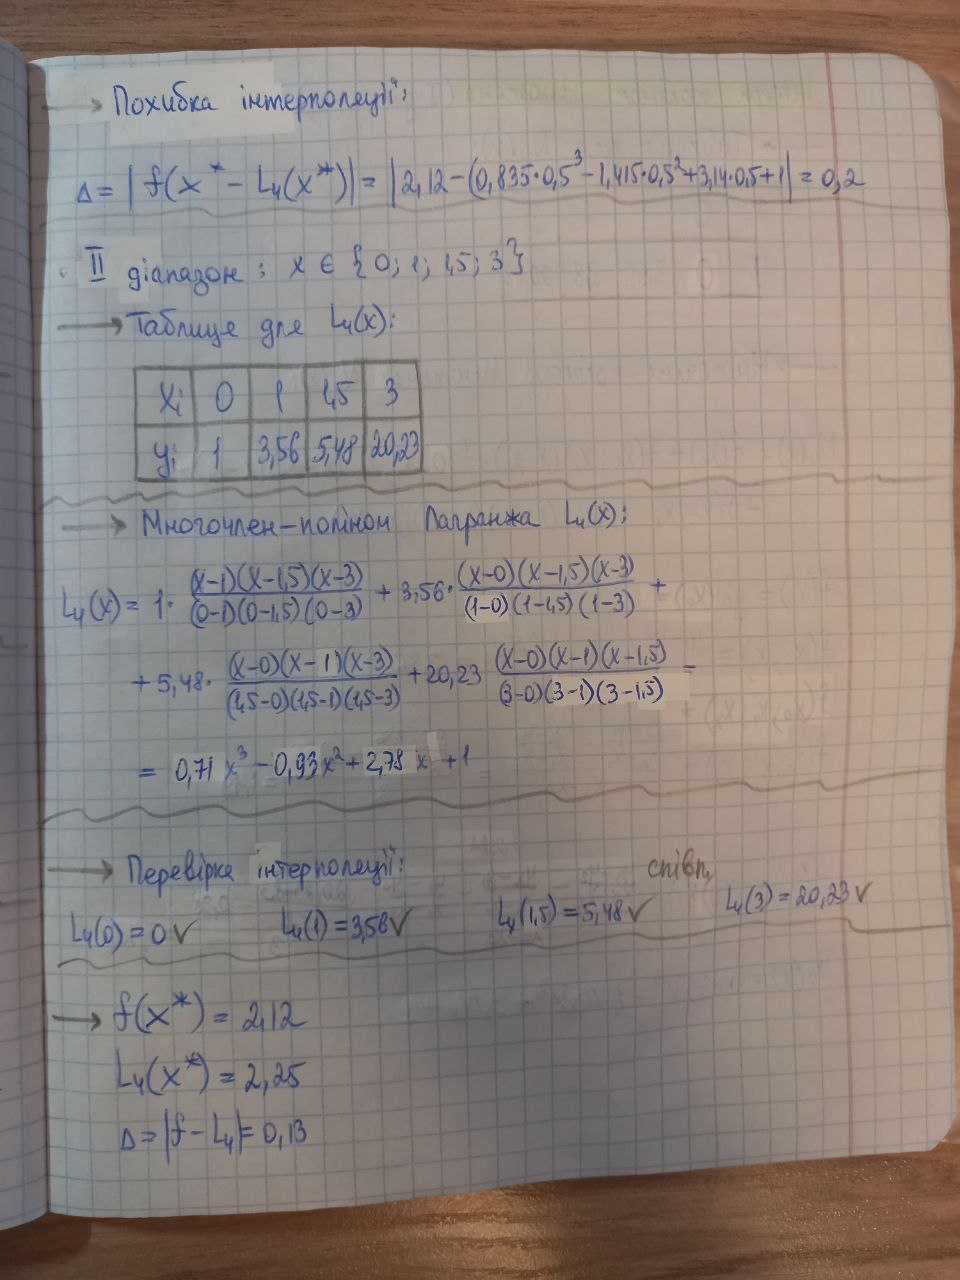 → Похибка інтерполяції:
Δ = | f(x* - L₄(x*)| = |2,12-(0,835·0,5³-1,415·0,5²+3,14·0,5+1| = 0,2
II діапазон: x ∈ {0; 1; 1,5; 3}
→ Таблиця для L₄(x):
xᵢ 0 1 1,5 3
yᵢ 1 3,56 5,48 20,23
→ Многочлен-поліном Лагранжа L₄(x):
L₄(x) = 1· (x-1)(x-1,5)(x-3)/(0-1)(0-1,5)(0-3) + 3,56· (x-0)(x-1,5)(x-3)/(1-0)(1-1,5)(1-3) +
+ 5,48· (x-0)(x-1)(x-3)/(1,5-0)(1,5-1)(1,5-3) + 20,23 (x-0)(x-1)(x-1,5)/(3-0)(3-1)(3-1,5) =
= 0,71 x³ - 0,93x² + 2,78 x + 1
→ Перевірка інтерполяції: співп.
L₄(0) = 0 ✓ L₄(1) = 3,56 ✓ L₄(1,5) = 5,48 ✓ L₄(3) = 20,23 ✓
→ f(x*) = 2,12
L₄(x*) = 2,25
Δ = |f - L₄| = 0,13